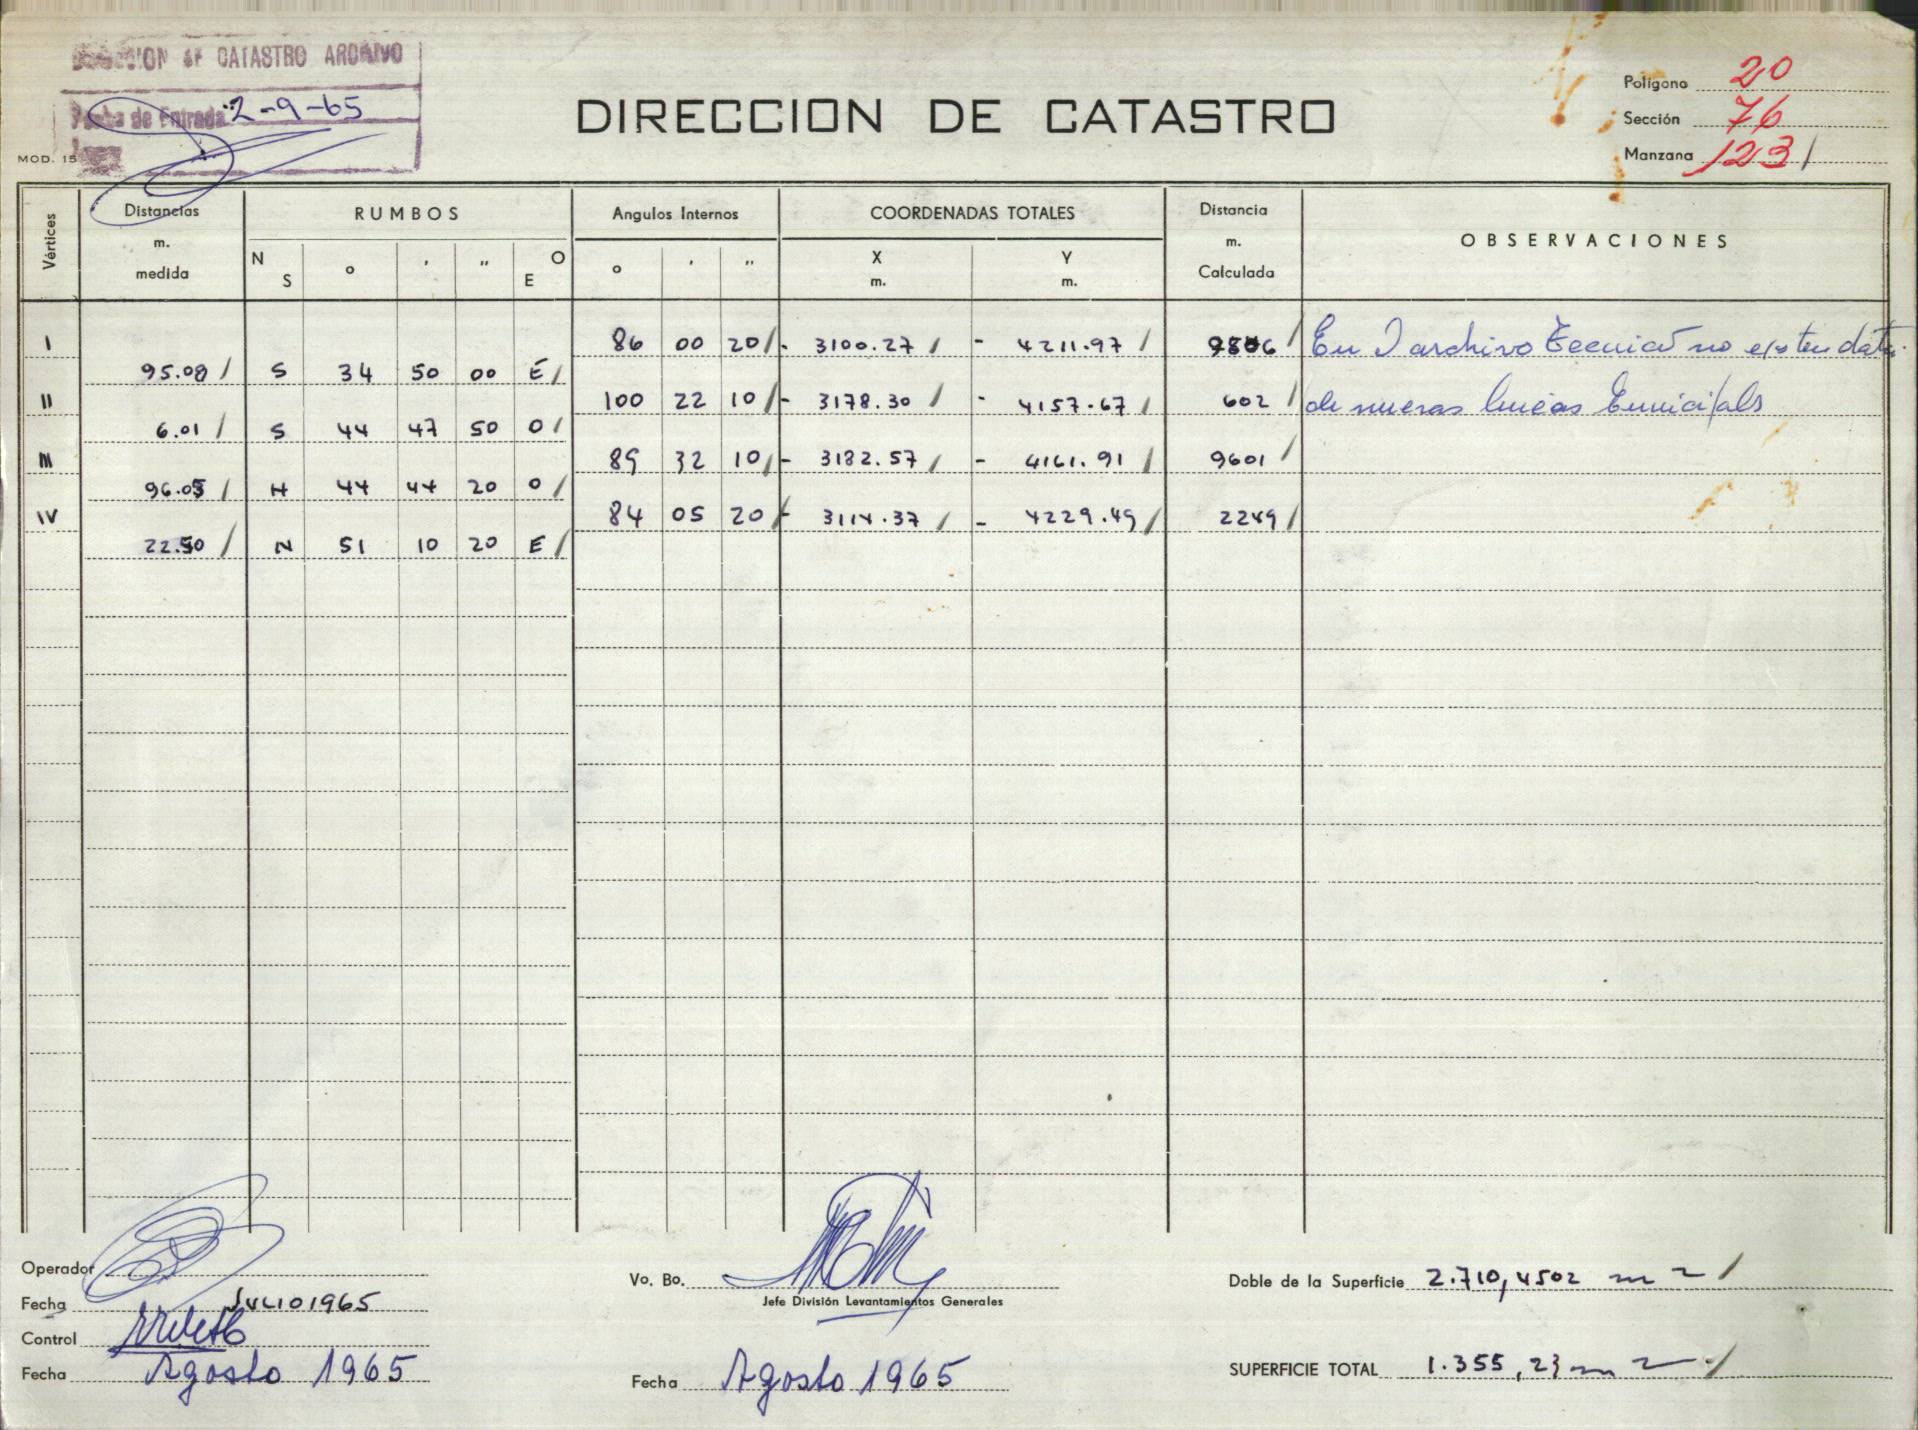 DIRECCION DE CATASTRO ARCHIVO
Fecha de Entrada 2-9-65
MOD. 15
DIRECCION DE CATASTRO
Polígono 20
Sección 76
Manzana 123
Vértices
Distancias m. medida
RUMBOS
N S ° ' " O E
Angulos Internos
° ' "
COORDENADAS TOTALES
X m. Y m.
Distancia m. Calculada
OBSERVACIONES
I 86 00 20 - 3100.27 - 4211.97 9506 En archivo no existen datos
95.08 S 34 50 00 E
II 100 22 10 - 3178.30 - 4157.67 602 de nuevas lineas
6.01 S 44 47 50 O
III 89 32 10 - 3182.57 - 4161.91 9601
96.05 N 44 44 20 O
IV 84 05 20 - 3114.37 - 4229.49 2249
22.50 N 51 10 20 E
Operador
Fecha JULIO 1965
Control
Fecha Agosto 1965
Vo. Bo.
Jefe División Levantamientos Generales
Fecha Agosto 1965
Doble de la Superficie 2.710,4502 m2
SUPERFICIE TOTAL 1.355,23 m2